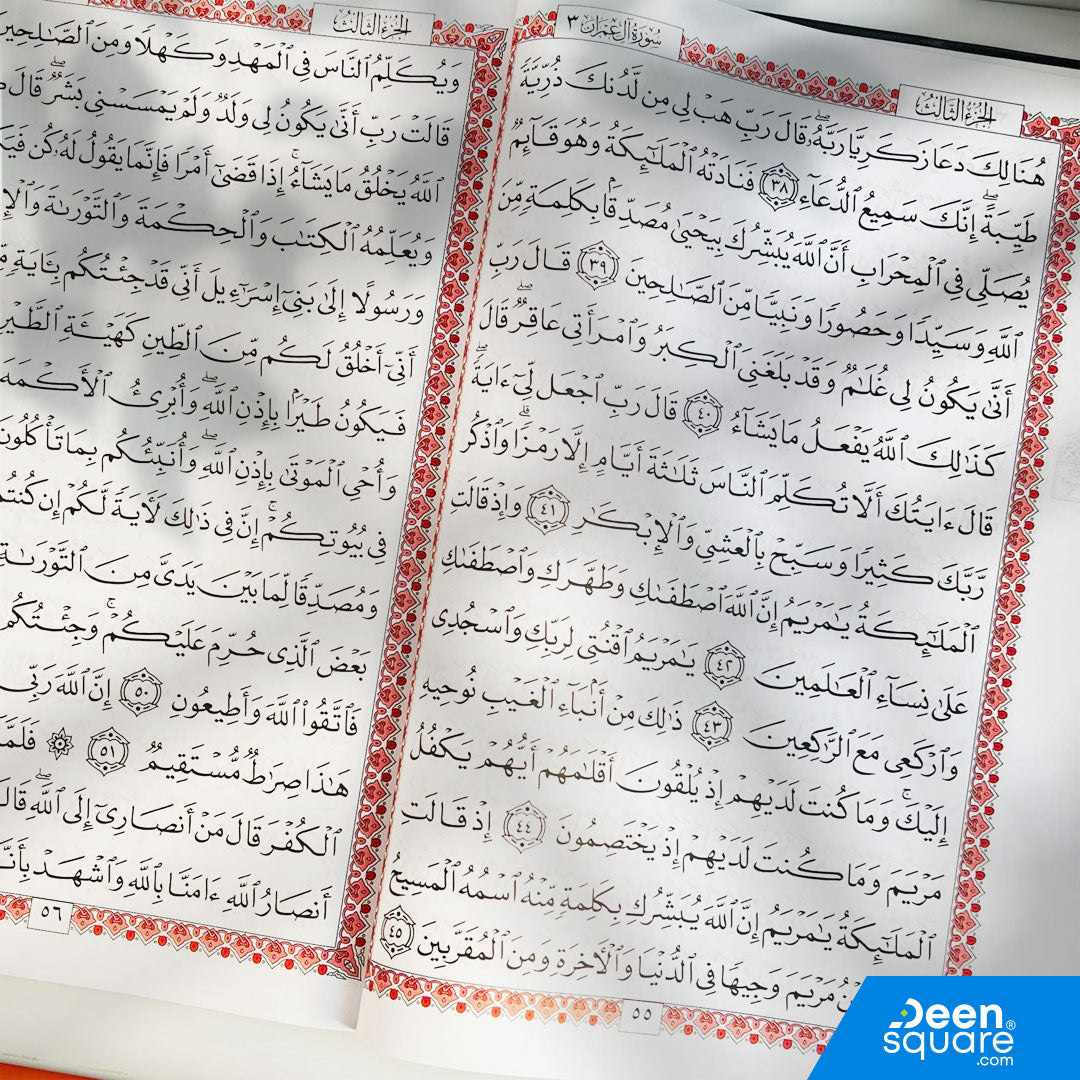 الجزء الثالث
سورة آل عمران ٣
هُنَالِكَ دَعَا زَكَرِيَّا رَبَّهُۥۖ قَالَ رَبِّ هَبْ لِى مِن لَّدُنكَ ذُرِّيَّةً
طَيِّبَةًۖ إِنَّكَ سَمِيعُ ٱلدُّعَآءِ ٣٨ فَنَادَتْهُ ٱلْمَلَٰٓئِكَةُ وَهُوَ قَآئِمٌ
يُصَلِّى فِى ٱلْمِحْرَابِ أَنَّ ٱللَّهَ يُبَشِّرُكَ بِيَحْيَىٰ مُصَدِّقًۢا بِكَلِمَةٍ مِّنَ
ٱللَّهِ وَسَيِّدًا وَحَصُورًا وَنَبِيًّا مِّنَ ٱلصَّٰلِحِينَ ٣٩ قَالَ رَبِّ
أَنَّىٰ يَكُونُ لِى غُلَٰمٌ وَقَدْ بَلَغَنِىَ ٱلْكِبَرُ وَٱمْرَأَتِى عَاقِرٌۖ قَالَ
كَذَٰلِكَ ٱللَّهُ يَفْعَلُ مَا يَشَآءُ ٤٠ قَالَ رَبِّ ٱجْعَل لِّىٓ ءَايَةًۖ
قَالَ ءَايَتُكَ أَلَّا تُكَلِّمَ ٱلنَّاسَ ثَلَٰثَةَ أَيَّامٍ إِلَّا رَمْزًاۗ وَٱذْكُر
رَّبَّكَ كَثِيرًا وَسَبِّحْ بِٱلْعَشِىِّ وَٱلْإِبْكَٰرِ ٤١ وَإِذْ قَالَتِ
ٱلْمَلَٰٓئِكَةُ يَٰمَرْيَمُ إِنَّ ٱللَّهَ ٱصْطَفَىٰكِ وَطَهَّرَكِ وَٱصْطَفَىٰكِ
عَلَىٰ نِسَآءِ ٱلْعَٰلَمِينَ ٤٢ يَٰمَرْيَمُ ٱقْنُتِى لِرَبِّكِ وَٱسْجُدِى
وَٱرْكَعِى مَعَ ٱلرَّٰكِعِينَ ٤٣ ذَٰلِكَ مِنْ أَنۢبَآءِ ٱلْغَيْبِ نُوحِيهِ
إِلَيْكَۚ وَمَا كُنتَ لَدَيْهِمْ إِذْ يُلْقُونَ أَقْلَٰمَهُمْ أَيُّهُمْ يَكْفُلُ
مَرْيَمَ وَمَا كُنتَ لَدَيْهِمْ إِذْ يَخْتَصِمُونَ ٤٤ إِذْ قَالَتِ
ٱلْمَلَٰٓئِكَةُ يَٰمَرْيَمُ إِنَّ ٱللَّهَ يُبَشِّرُكِ بِكَلِمَةٍ مِّنْهُ ٱسْمُهُ ٱلْمَسِيحُ
مَرْيَمَ وَجِيهًا فِى ٱلدُّنْيَا وَٱلْءَاخِرَةِ وَمِنَ ٱلْمُقَرَّبِينَ ٤٥
٥٥
الجزء الثالث
وَيُكَلِّمُ ٱلنَّاسَ فِى ٱلْمَهْدِ وَكَهْلًا وَمِنَ ٱلصَّٰلِحِينَ
قَالَتْ رَبِّ أَنَّىٰ يَكُونُ لِى وَلَدٌ وَلَمْ يَمْسَسْنِى بَشَرٌۖ قَالَ
ٱللَّهُ يَخْلُقُ مَا يَشَآءُۚ إِذَا قَضَىٰٓ أَمْرًا فَإِنَّمَا يَقُولُ لَهُۥ كُن
وَيُعَلِّمُهُ ٱلْكِتَٰبَ وَٱلْحِكْمَةَ وَٱلتَّوْرَىٰةَ
وَرَسُولًا إِلَىٰ بَنِىٓ إِسْرَٰٓءِيلَ أَنِّى قَدْ جِئْتُكُم بِـَٔايَةٍ
أَنِّىٓ أَخْلُقُ لَكُم مِّنَ ٱلطِّينِ كَهَيْـَٔةِ ٱلطَّيْرِ
فَيَكُونُ طَيْرًۢا بِإِذْنِ ٱللَّهِۖ وَأُبْرِئُ ٱلْأَكْمَهَ
وَأُحْىِ ٱلْمَوْتَىٰ بِإِذْنِ ٱللَّهِۖ وَأُنَبِّئُكُم بِمَا تَأْكُلُونَ
فِى بُيُوتِكُمْۚ إِنَّ فِى ذَٰلِكَ لَءَايَةً لَّكُمْ إِن كُنتُم
وَمُصَدِّقًا لِّمَا بَيْنَ يَدَىَّ مِنَ ٱلتَّوْرَىٰةِ
بَعْضَ ٱلَّذِى حُرِّمَ عَلَيْكُمْۚ وَجِئْتُكُم
فَٱتَّقُوا۟ ٱللَّهَ وَأَطِيعُونِ ٥٠ إِنَّ ٱللَّهَ رَبِّى
هَٰذَا صِرَٰطٌ مُّسْتَقِيمٌ ٥١ ۞ فَلَمَّا
ٱلْكُفْرَ قَالَ مَنْ أَنصَارِىٓ إِلَى ٱللَّهِۖ قَالَ
أَنصَارُ ٱللَّهِ ءَامَنَّا بِٱللَّهِ وَٱشْهَدْ بِأَنَّا
٥٦
Deen
square®
.com